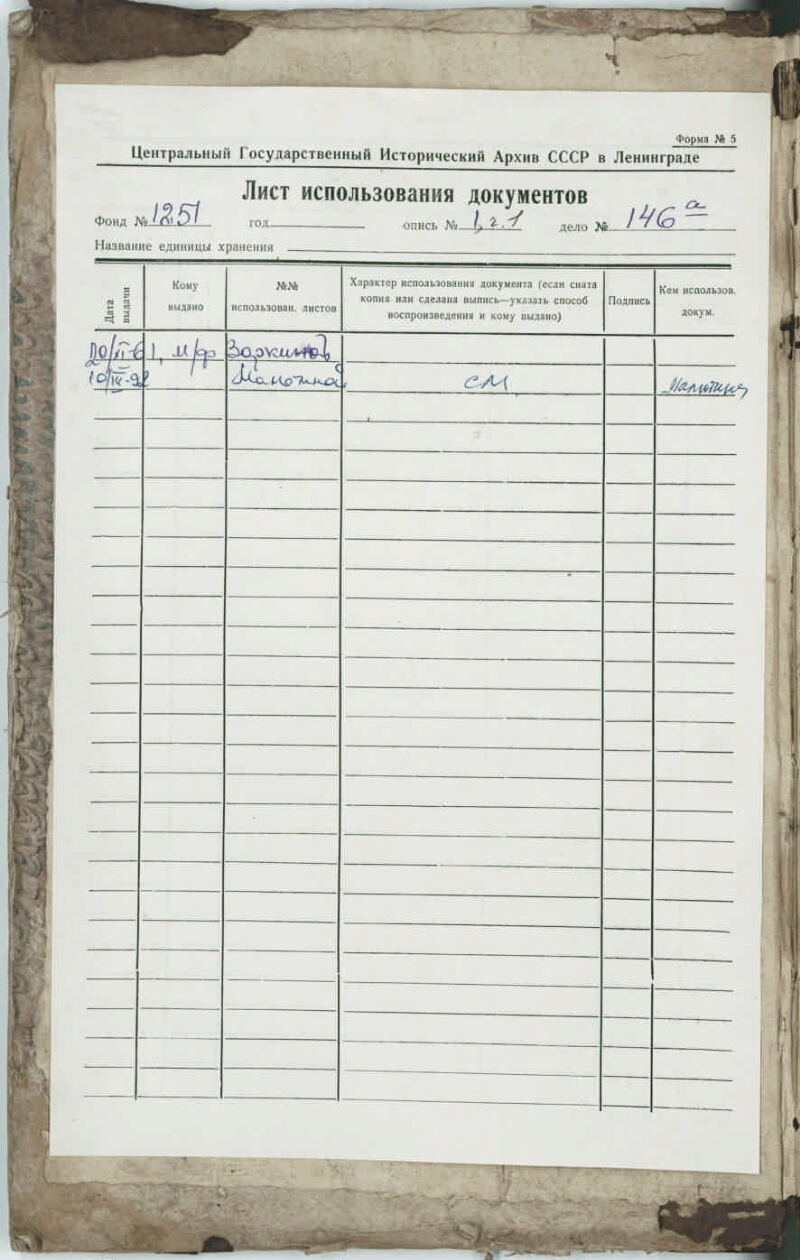 Форма № 5
Центральный Государственный Исторический Архив СССР в Ленинграде
Лист использования документов
Фонд № 1251 год опись № 1, г. 1 дело № 146 а
Название единицы хранения
Дата выдачи
Кому выдано
№№ использован. листов
Характер использования документа (если снята копия или сделана выпись—указать способ воспроизведения и кому выдано)
Подпись
Кем использов. докум.
20/XI-61, м/ф
10/IV-92 СМ